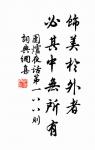 飾美於外者
必其中無所有
圍爐夜話第一八八則
詞典網集